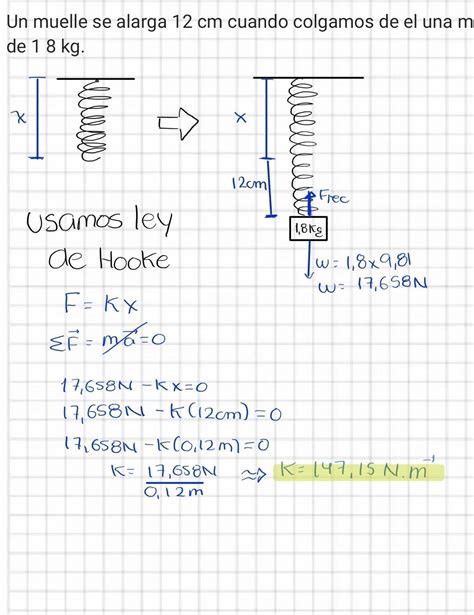 Un muelle se alarga 12 cm cuando colgamos de el una m
de 1 8 kg.
x
x
12cm
Frec
1,8Kg
w = 1,8x9,81
w = 17,658N
usamos ley
de Hooke
F = Kx
ΣF⃗ = ma⃗ = 0
17,658N - Kx = 0
17,658N - K(12cm) = 0
17,658N - K(0,12m) = 0
K = 17,658N / 0,12m ≈> K = 147,15 N.m⁻¹